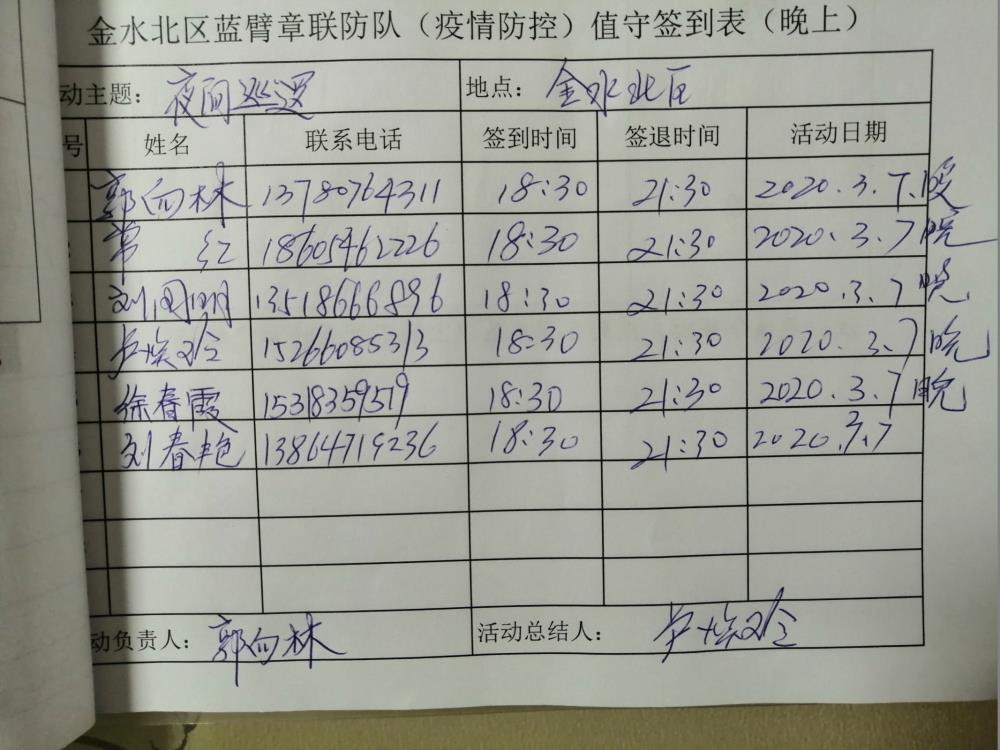 金水北区蓝臂章联防队（疫情防控）值守签到表（晚上）
动主题： 夜间巡逻 地点： 金水北区
号 姓名 联系电话 签到时间 签退时间 活动日期
郭向林 13780764311 18:30 21:30 2020.3.7.
常 红 18605462226 18:30 21:30 2020.3.7晚
刘国明 13518666896 18:30 21:30 2020.3.7晚
15266085313 18:30 21:30 2020.3.7晚
徐春霞 15318359519 18:30 21:30 2020.3.7晚
刘春艳 13864719236 18:30 21:30 2020.3.7
动负责人： 郭向林 活动总结人：